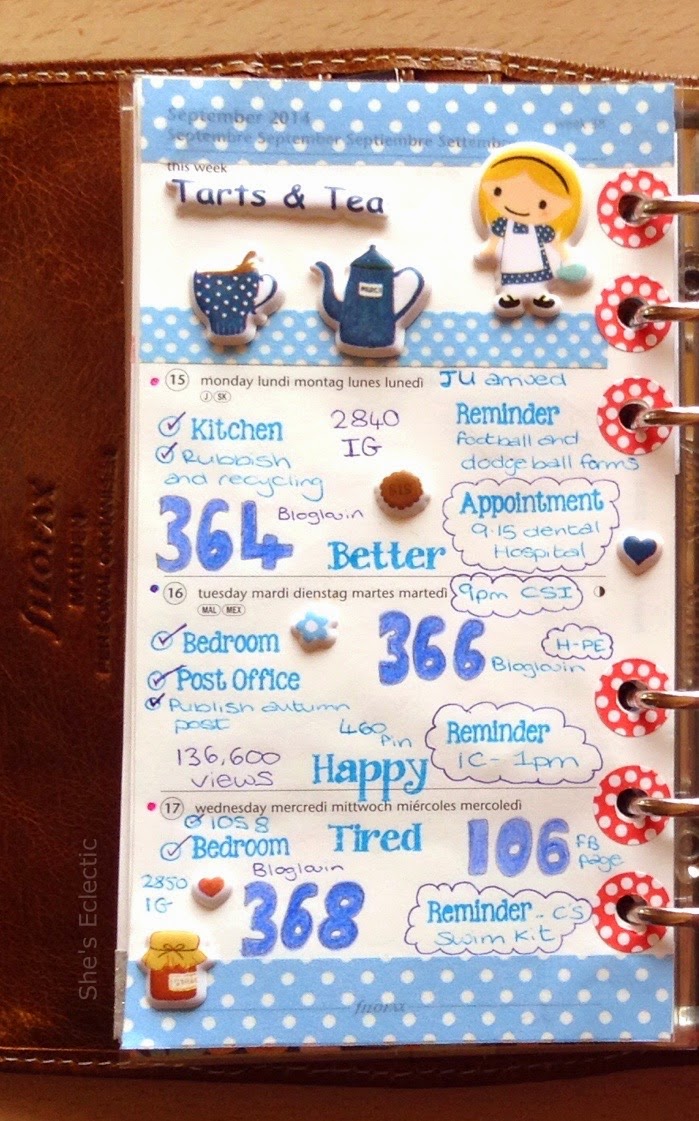 September 2014
Septembre September Septiembre Settembre
this week
Tarts & Tea
15 monday lundi montag lunes lunedì
J SK
JU arrived
Kitchen
Rubbish
and recycling
2840
IG
Reminder
football and
dodgeball forms
364 Bloglovin
Better
Appointment
9.15 dental
Hospital
16 tuesday mardi dienstag martes martedì
MAL MEX
9pm CSI
Bedroom
Post Office
Publish autumn
post
366 Bloglovin
H-PE
460
Pin
136,600
views
Happy
Reminder
1C- 1pm
17 wednesday mercredi mittwoch miércoles mercoledì
IOS 8
Bedroom
Tired
106 FB
page
2850
IG
Bloglovin
368
Reminder - C's
Swim Kit
filofax
filofax
MALDEN
PERSONAL ORGANISER
She's Eclectic